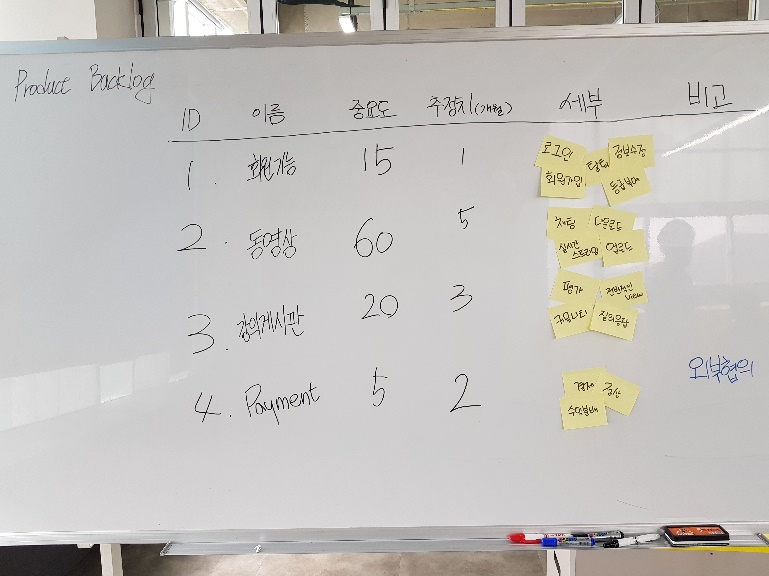 Product Backlog
ID 이름 중요도 추정치(개월) 세부 비고
1. 회원기능 15 1
로그인 탈퇴 정보수정
회원가입 등급부여
2. 동영상 60 5
채팅 다운로드
실시간 스트리밍 업로드
3. 강의게시판 20 3
평가 전반적인 View
커뮤니티 질의응답
4. Payment 5 2 외부협의
결제 정산
수익분배